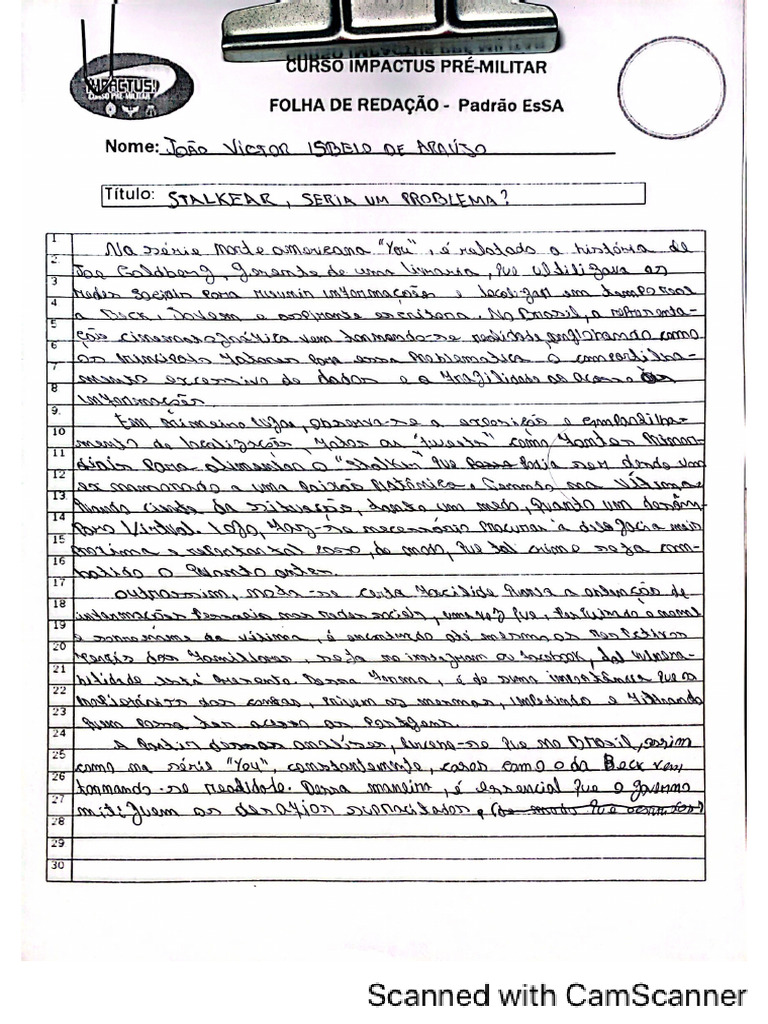 IMPACTUS!
CURSO PRÉ-MILITAR
CURSO IMPACTUS PRÉ-MILITAR
FOLHA DE REDAÇÃO - Padrão EsSA
Nome: JOÃO VICTOR ISBELO DE ARAÚJO
Título: STALKEAR, SERIA UM PROBLEMA?
1 Na série norte americana "You", é relatado a história de
2 Joe Goldberg, gerente de uma livraria, que ultilizava as
3 redes sociais para reunir informações e localizar em tempo real
4 a Beck, jovem e aspirante escritora. No Brasil, a representa-
5 ção cinematográfica vem tornando-se realidade, englobando como
6 os principais fatores para essa problematica o compartilha-
7 mento excessivo de dados e a fragilidade ao acesso às
8 informações.
9 Em primeiro lugar, observa-se a exposição e compartilha-
10 mento de localizações, fotos ou "tweets" como fontes primor-
11 diais para alimentar o "stalker" que podia ser desde um
12 ex namorado a uma paixão platônica. Gerando na vítima,
13 quando ciente da situação, tanto um medo, quanto um desâm-
14 paro virtual. Logo, faz-se necessário procurar a delegacia mais
15 próxima e relatar tal caso, de modo, que tal crime seja com-
16 batido o quanto antes.
17 Outrossim, nota-se certa facilidade para a obtenção de
18 informações pessoais nas redes sociais, uma vez que, pesquisado o nome
19 e sobrenome da vítima, é encontrado até mesmo os respectivos
20 perfis dos familiares, seja no instagram ou facebook, tal vulnera-
21 bilidade está presente. Dessa forma, é de suma importância que os
22 proprietários das contas, privem as mesmas, impedindo e filtrando
23 quem possa ter acesso as postagens.
24 A partir dessas analises, infere-se que no Brasil, assim
25 como na série "You", constantemente, casos como o da Beck vem
26 tornando-se realidade. Dessa maneira, é essencial que o governo
27 mitiguem os desafios supracitados,
28
29
30
Scanned with CamScanner